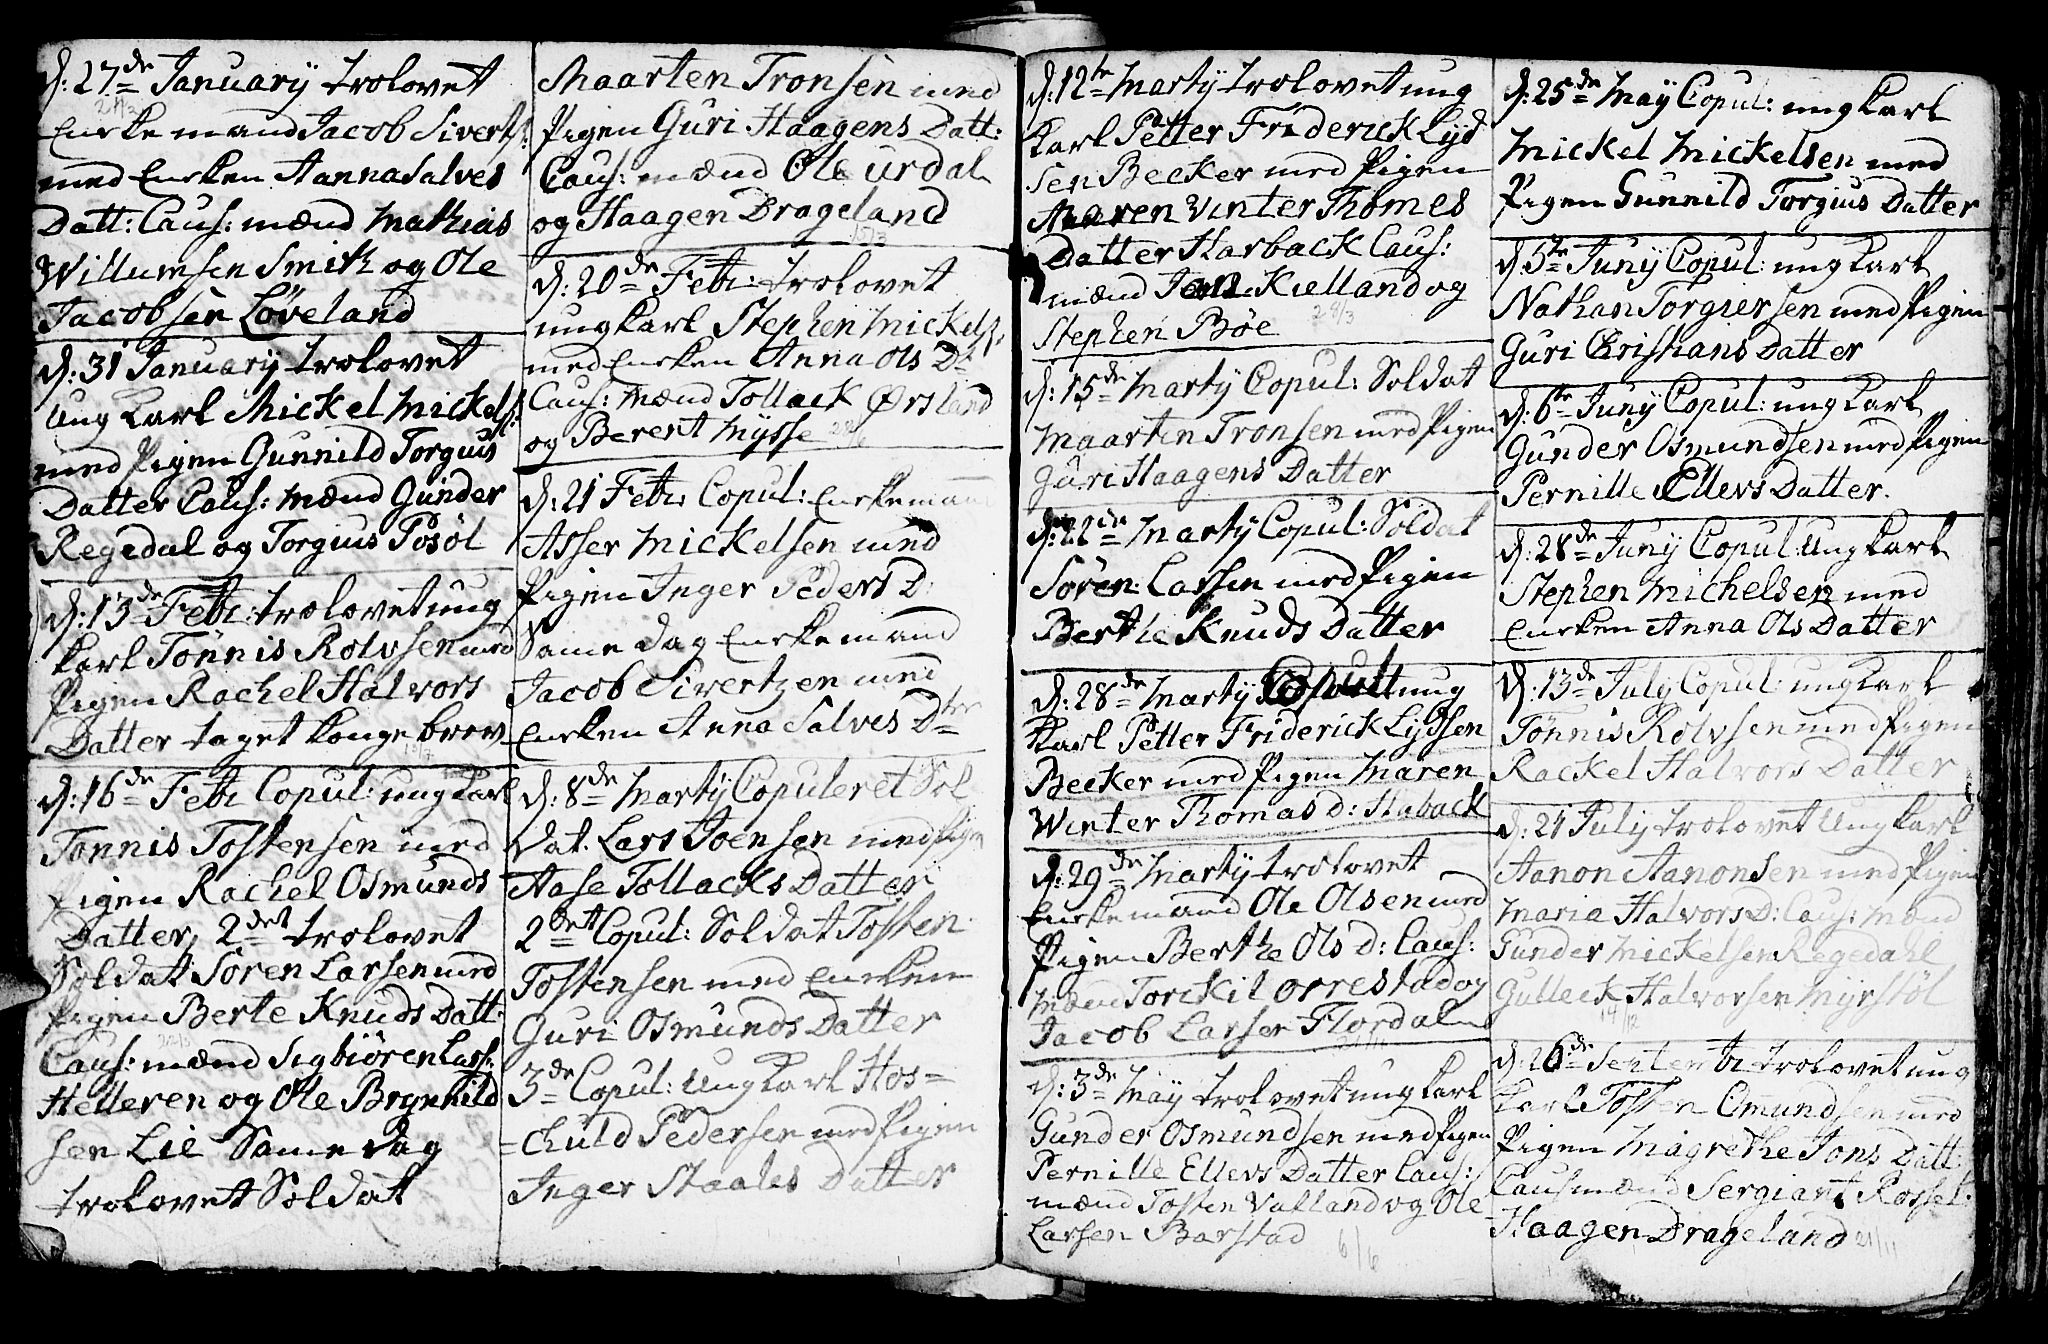 d: 27de January trolovet
21/3
Enkemand Jacob Sivertz:
med Enken Anna Salves
Datt: Caus: mænd Mathias
Willumsen Smith og Ole
Jacobsen Løveland
d: 31 January trolovet
Ung Karl Mickel Mickels:
med Pigen Gunnild Torgius
Datter Caus: Mænd Gunder
Regedal og Torgius Posøl
d: 13de Febr: trolovet ung
Karl Tönnis Rolvsen med
Pigen Rachel Halvors
Datter taget Kongebrev
d: 16de Febr Copul: ung Karl
Tonnis Tostensen med
Pigen Rachel Osmunds
Datter, 2det trolovet
Soldat Sören Larsen med
Pigen Berte Knuds Datt:
Caus: mænd Sigbiören Lars:
Helleren og Ole Brynnild
sen Lie Same dag
trolovet Soldat
Maarten Tronsen med
Pigen Guri Haagens Datt:
Caus: mænd Ole Urdal
og Haagen Drageland
15/3
d: 20de Febr: trolovet
ung Karl Stephen Mickels:
med Enken Anna Ols Dr
Caus: Mænd Tollack Ørsland
og Berent Mysse
d: 21 Febr: Copul: Enkemand
Asser Mickelsen med
Pigen Inger Peders D:
Same dag Enkemand
Jacob Sivertzen med
Enken Anna Salves Dter
d: 8de Marty Copuleret Sol
dat. Lars Joensen med Pigen
Aase Tollacks Datter
2det Copul: Soldat Tosten
Tostensen med Enken
Guri Osmunds Datter
3de Copul: Ung Karl Hos=
=chuld Pedersen med Pigen
Inger Staales Datter
d: 12te Marty trolovet ung
Karl Petter Friderick Lyd
sen Becker med Pigen
Maren Vinter Thomes
Datter Harback Caus:
mænd Jens Kielland og
Stephen Bøe
28/3
d: 15de Marty Copul: Soldat
Maarten Tronsen med Pigen
Guri Haagens Datter
d: 22de Marty Copul: Soldat
Sören Larsen med Pigen
Berthe Knuds Datter
d: 28de Marty Copul: ung
Karl Petter Friderick Lydssen
Becker med Pigen Maren
Winter Thomas d: Haback
d: 29de Marty trolovet
Enkemand Ole Olsen med
Pigen Berthe Ols d: Caus:
Mænd Torckil Orrestad og
Jacob Larser Flordal
d: 3de May trolovet ung Karl
Gunder Osmundsen med Pigen
Pernille Ellevs Datter Caus:
mænd Tosten Valland og Ole
Larsen Barstad
6/6
d: 25de May Copul: ung Karl
Mickel Mickelsen med
Pigen Gunnild Torgius Datter
d: 5te Juny Copul: ung Karl
Nathan Torgiersen med Pigen
Guri Christians Datter
d: 6te Juny Copul: ung Karl
Gunder Osmundsen med Pigen
Pernille Ellevs Datter.
d: 28de Juny Copul: Ung Karl
Stephen Michelsen med
Enken Anna Ols Datter
d: 13de July Copul: ung Karl
Tönnis Rolvsen med Pigen
Rackel Halvors Datter
d: 21 July trolovet Ung Karl
Aanon Aanonsen med Pigen
Maria Halvors D: Caus: Mænd
Gunder Mickelsen Regedahl
Gulleck Halvorsen Myrstøl
14/12
d: 26de Septembr trolovet ung
Karl Tosten Omundsen med
Pigen Magrethe Jons Datt:
Causmænd Sergiant Rossel.
Haagen Drageland 21/11